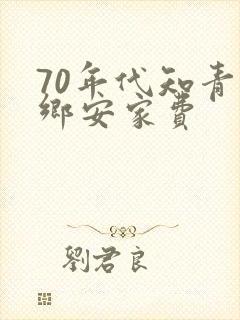 70年代知青
鄉安家費
劉君良